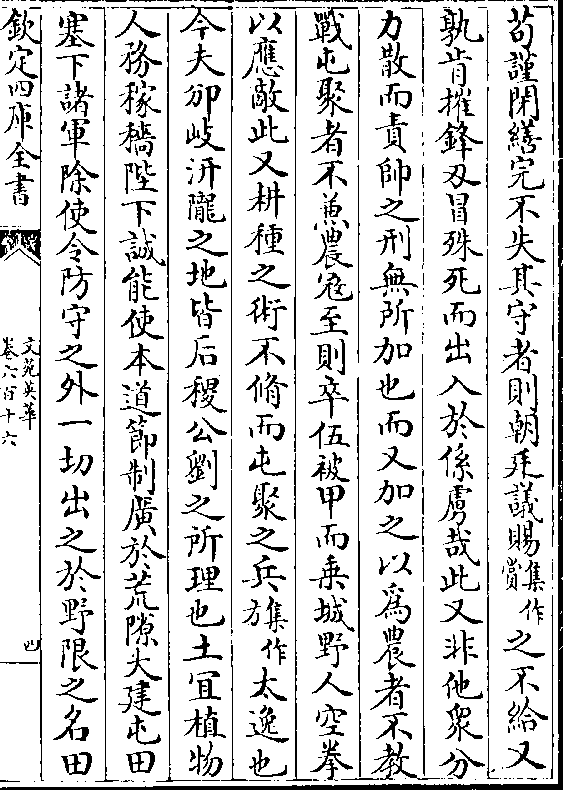 苟謹閉繕完不失其守者則朝廷議賜集作賞之不給又
孰肯摧鋒刃冒殊死而出入於係虜哉此又非他衆分
力散而責帥之刑無所加也而又加之以為農者不教
戰屯聚者不兼農寇至則卒伍被甲而乗城野人空拳
以應敵此又耕種之術不脩而屯聚之兵集作方太逸也
今夫邠岐汧隴之地皆后稷公劉之所理也土冝植物
人務稼穡陛下誠能使本道節制廣於荒隙大建屯田
塞下諸軍除使令防守之外一切出之於野限之名田
欽定四庫全書
文苑英華
卷六百十六
四